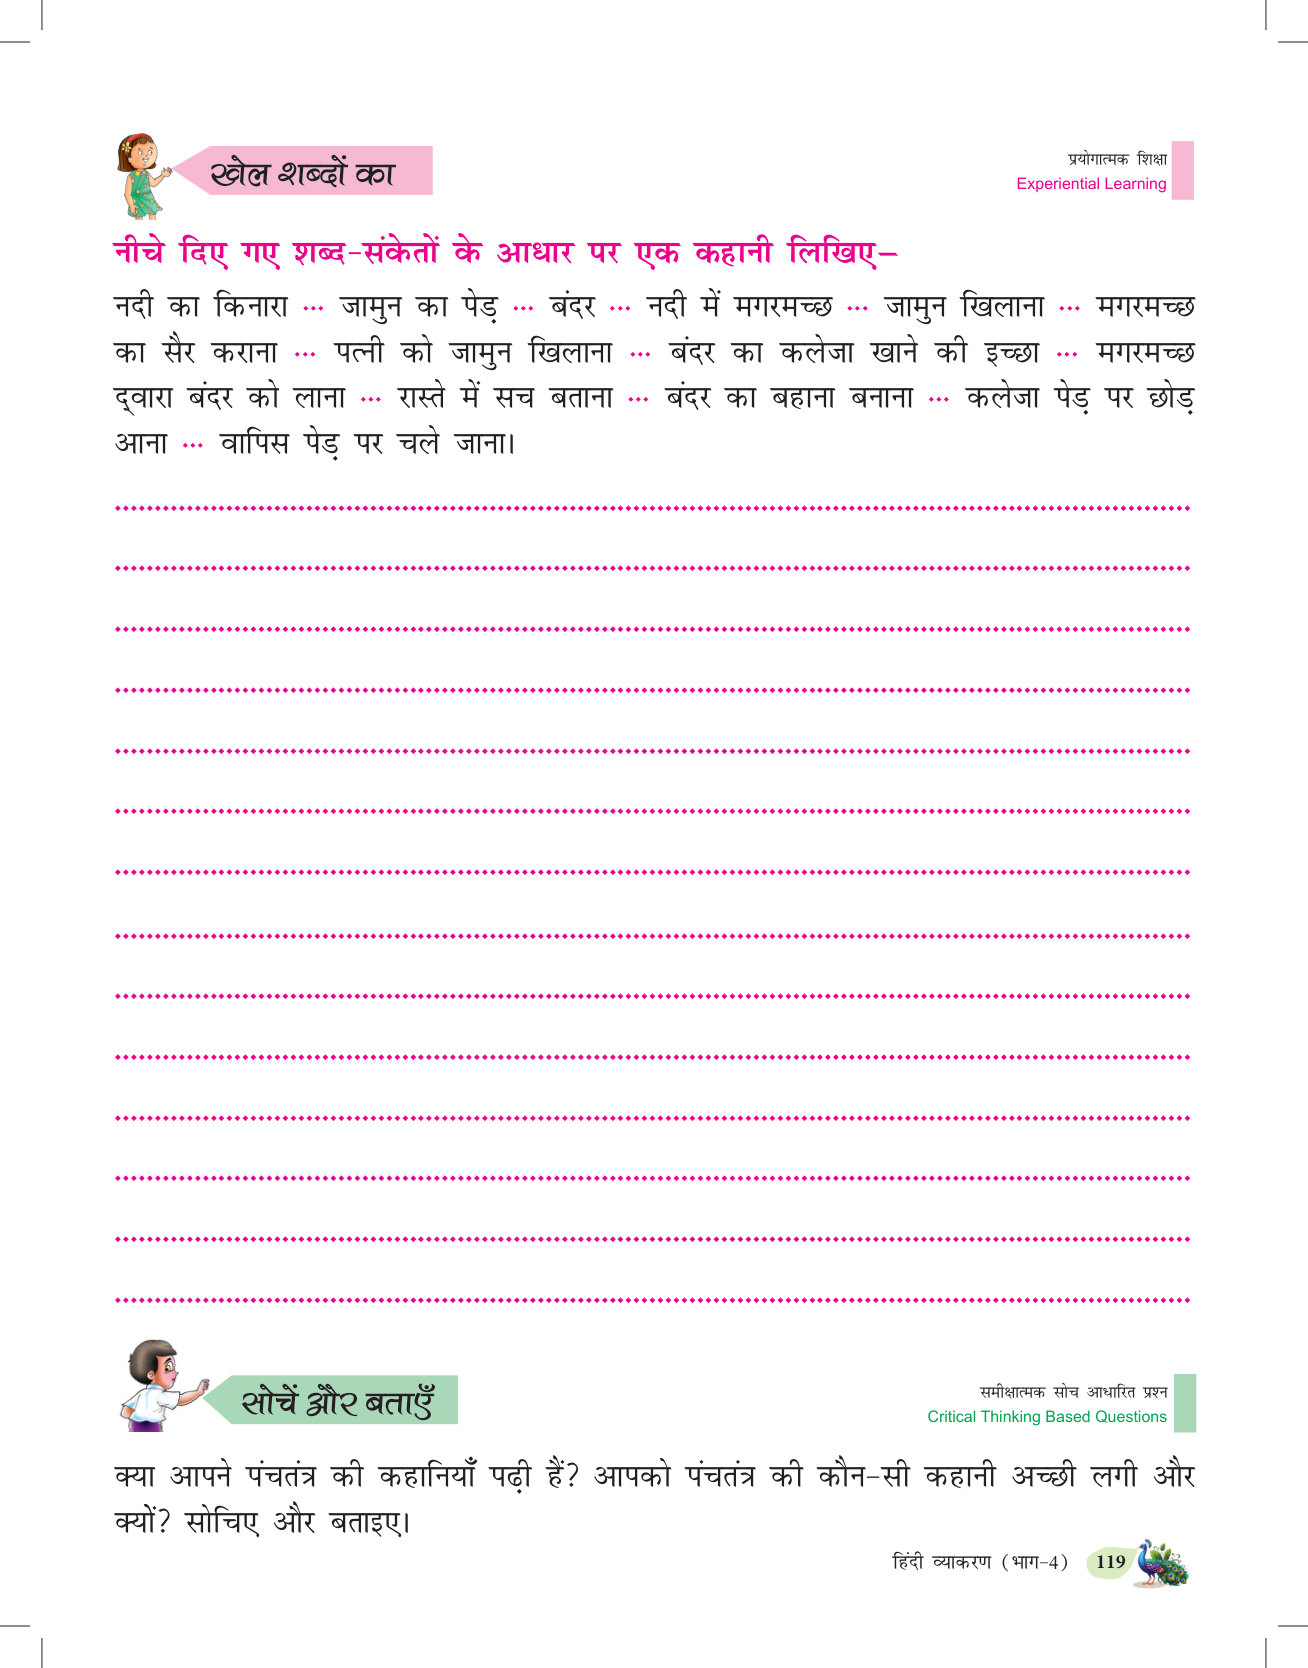 खेल शब्दों का
प्रयोगात्मक शिक्षा
Experiential Learning
नीचे दिए गए शब्द-संकेतों के आधार पर एक कहानी लिखिए–
नदी का किनारा ... जामुन का पेड़ ... बंदर ... नदी में मगरमच्छ ... जामुन खिलाना ... मगरमच्छ
का सैर कराना ... पत्नी को जामुन खिलाना ... बंदर का कलेजा खाने की इच्छा ... मगरमच्छ
द्‌वारा बंदर को लाना ... रास्ते में सच बताना ... बंदर का बहाना बनाना ... कलेजा पेड़ पर छोड़
आना ... वापिस पेड़ पर चले जाना।
सोचें और बताएँ
समीक्षात्मक सोच आधारित प्रश्न
Critical Thinking Based Questions
क्या आपने पंचतंत्र की कहानियाँ पढ़ी हैं? आपको पंचतंत्र की कौन-सी कहानी अच्छी लगी और
क्यों? सोचिए और बताइए।
हिंदी व्याकरण (भाग-4) 119